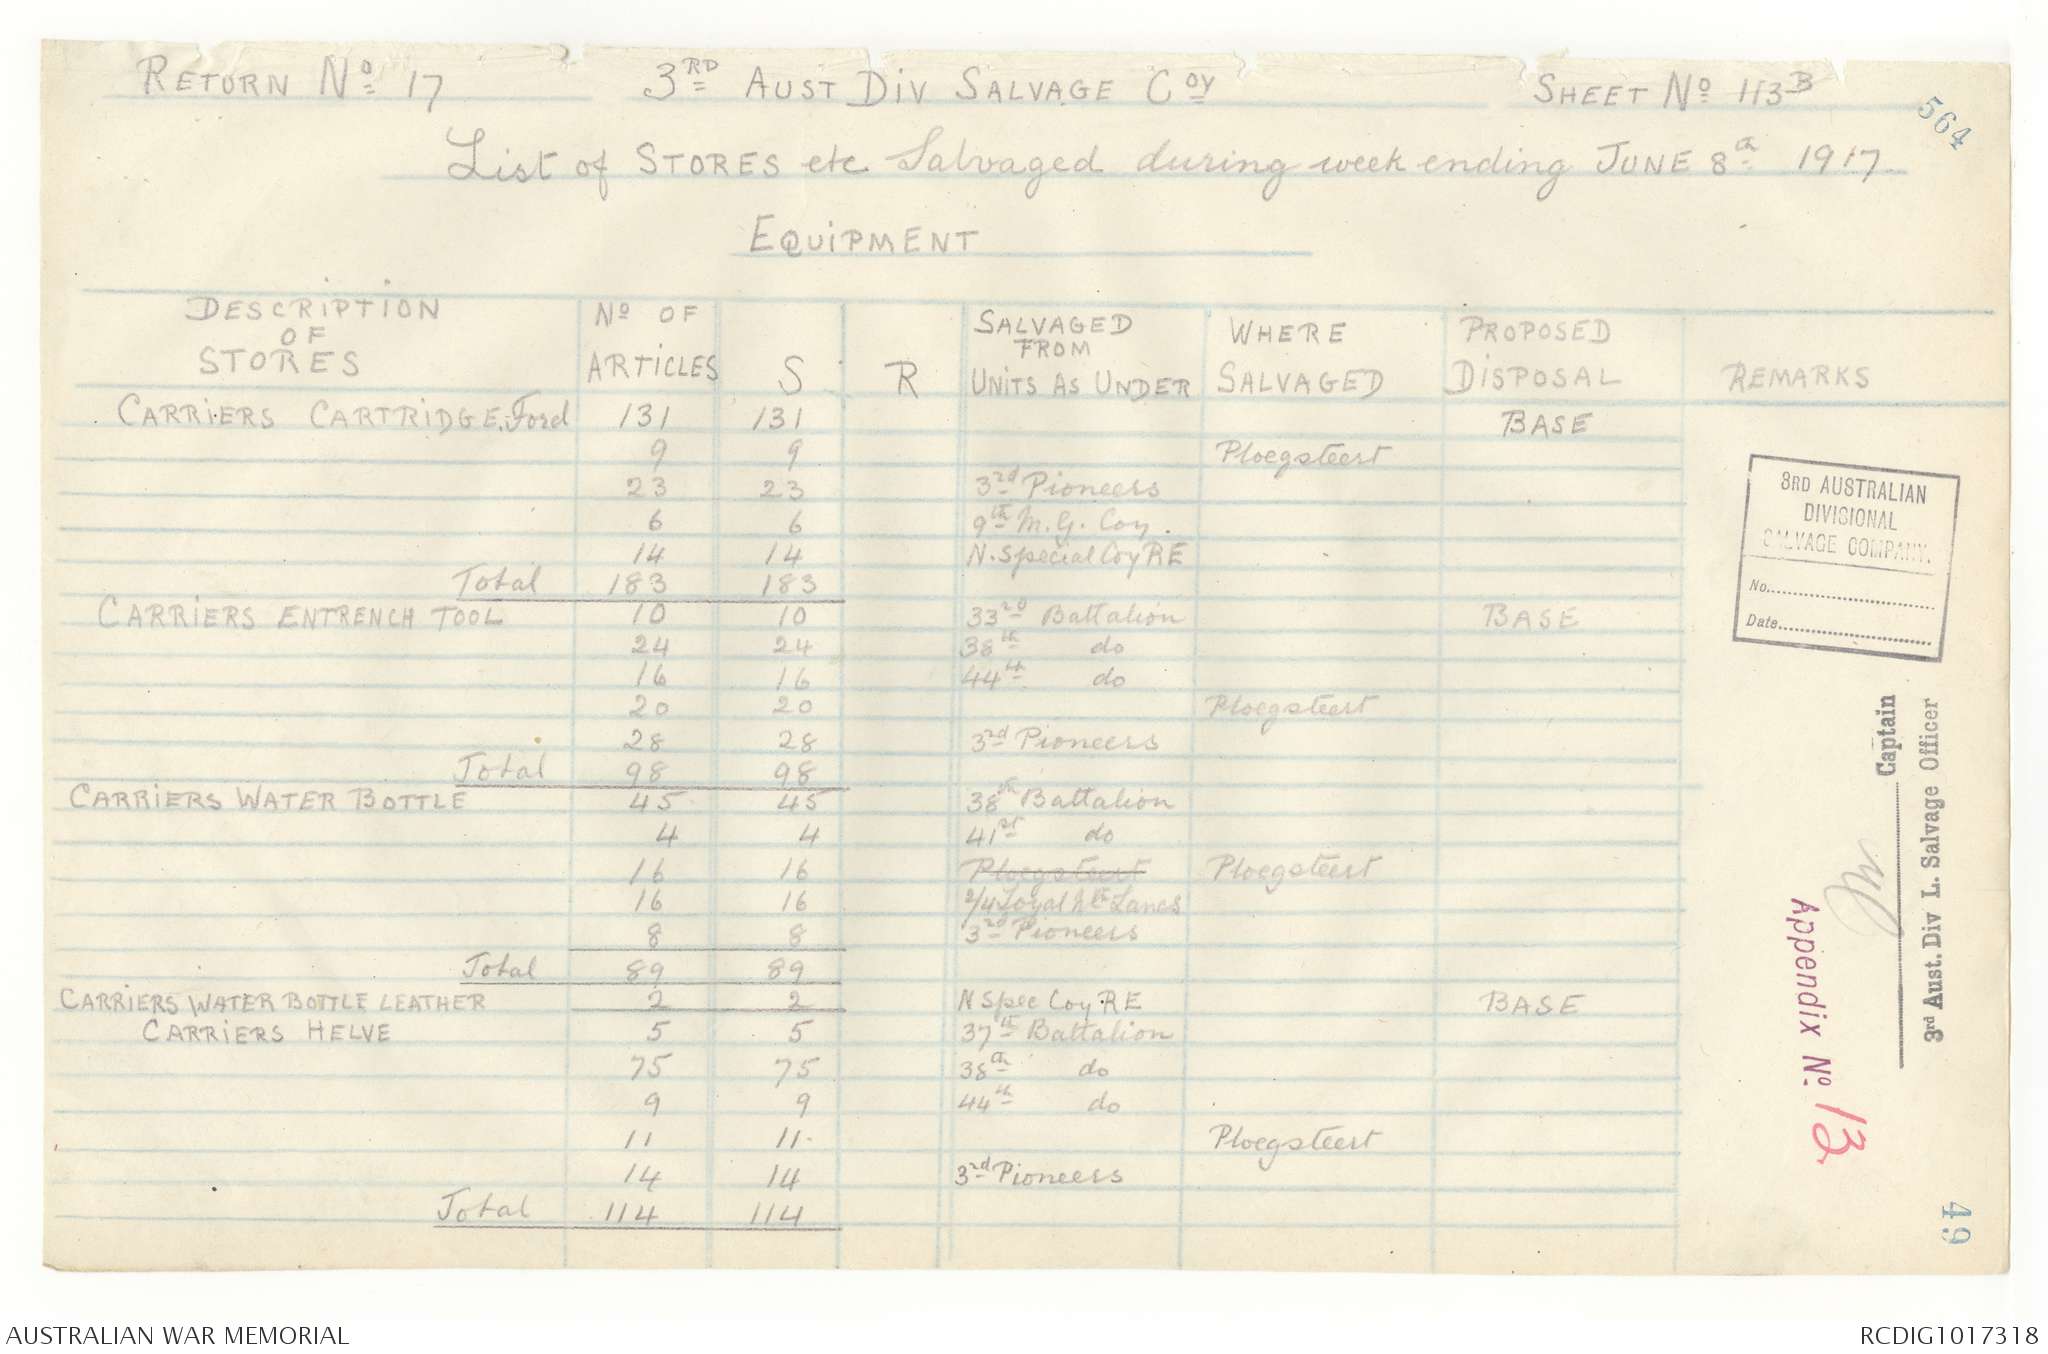 RETURN No 17 3RD AUST DIV SALVAGE Coy SHEET No 113B
564
List of STORES etc Salvaged during week ending JUNE 8th 1917
EQUIPMENT
DESCRIPTION OF STORES No OF ARTICLES S R SALVAGED FROM UNITS AS UNDER WHERE SALVAGED PROPOSED DISPOSAL REMARKS
CARRIERS CARTRIDGE. Ford 131 131 BASE
9 9 Ploegsteert
23 23 3rd Pioneers
6 6 9th M.G. Coy.
14 14 N. Special Coy RE
Total 183 183
CARRIERS ENTRENCH TOOL 10 10 33rd Battalion BASE
24 24 38th do
16 16 44th do
20 20 Ploegsteert
28 28 3rd Pioneers
Total 98 98
CARRIERS WATER BOTTLE 45 45 38th Battalion
4 4 41st do
16 16 Ploegsteert Ploegsteert
16 16 2/4 Loyal Nth Lancs
8 8 3rd Pioneers
Total 89 89
CARRIERS WATER BOTTLE LEATHER 2 2 N Spec Coy RE BASE
CARRIERS HELVE 5 5 37th Battalion
75 75 38th do
9 9 44th do
11 11 Ploegsteert
14 14 3rd Pioneers
Total 114 114
3RD AUSTRALIAN
DIVISIONAL
SALVAGE COMPANY.
No.
Date
Captain
3rd Aust. Div L. Salvage Officer
Appendix No. 13
49
AUSTRALIAN WAR MEMORIAL RCDIG1017318